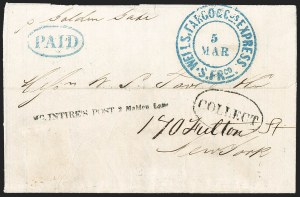 p Golden Gate
PAID
WELLS, FARGO & CO'S EXPRESS
5
MAR
S. FRCO.
Messrs W. S.
McINTIRE'S POST 2 Maiden Lane
COLLECT
170 Fulton St
New York